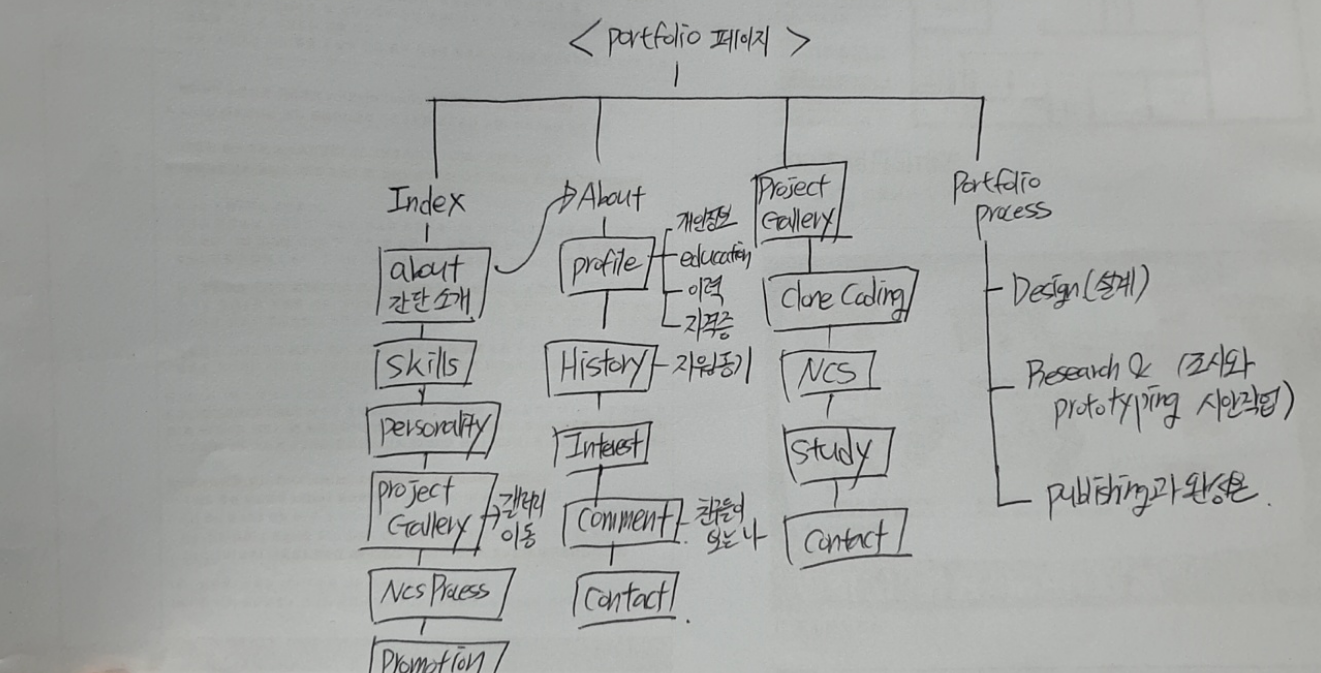 < portfolio 페이지 >
Index
about
간단 소개
Skills
personality
project
Gallery
갤러리
이동
Ncs Process
Promotion
About
profile
개인정보
education
이력
자격증
History
지원동기
Interest
Comment
친구들이
보는 나
Contact
Project
Gallery
Clone Coding
NCS
Study
Contact
Portfolio
process
Design (설계)
Research & (조사와
prototyping 시안작업)
publishing과 완성본.